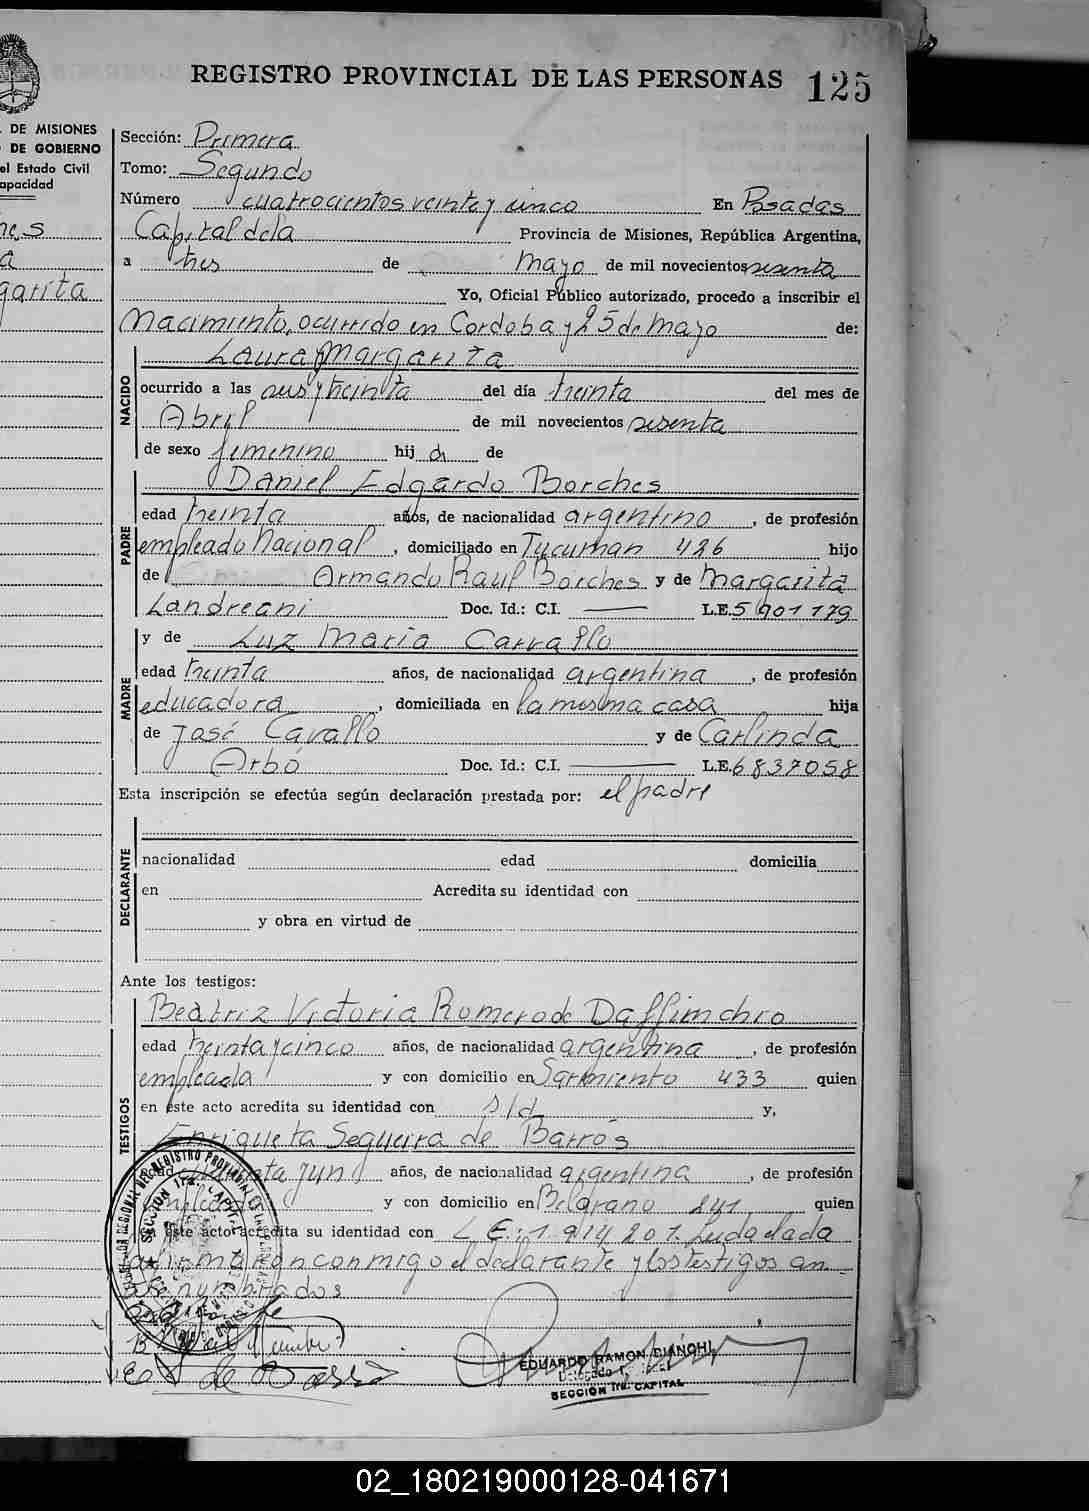 REGISTRO PROVINCIAL DE LAS PERSONAS 125
DE MISIONES
DE GOBIERNO
el Estado Civil
apacidad
garita
Sección: Primera
Tomo: Segundo
Número cuatrocientos veinte y cinco En Posadas
Capital de la Provincia de Misiones, República Argentina,
a tres de Mayo de mil novecientos sesenta
Yo, Oficial Público autorizado, procedo a inscribir el
Nacimiento, ocurrido en Cordoba y 25 de Mayo de:
Laura Margarita
NACIDO
ocurrido a las seis y treinta del día treinta del mes de
Abril de mil novecientos sesenta
de sexo femenino hij a de
Daniel Edgardo Borches
PADRE
edad treinta años, de nacionalidad argentino, de profesión
empleado Nacional, domiciliado en Tucuman 426 hijo
de Armando Raul Borches y de Margarita
Landreani Doc. Id.: C.I. — L.E. 5901179
y de Luz Maria Carvallo
MADRE
edad treinta años, de nacionalidad argentina, de profesión
educadora, domiciliada en la misma casa hija
de José Cavallo y de Carlinda
Arbó Doc. Id.: C.I. — L.E. 6837058
Esta inscripción se efectúa según declaración prestada por: el padre
DECLARANTE
nacionalidad edad domicilia
en Acredita su identidad con
y obra en virtud de
Ante los testigos:
Beatriz Victoria Romero de Daffinchio
TESTIGOS
edad treinta y cinco años, de nacionalidad argentina, de profesión
empleada y con domicilio en Sarmiento 433 quien
en este acto acredita su identidad con s/d y,
Enriqueta Sequeira de Barrós
edad y un años, de nacionalidad argentina, de profesión
y con domicilio en Belgrano 241 quien
este acto acredita su identidad con L.E: 1.914.201. Leida el acta
firmaron conmigo el declarante y los testigos an-
EDUARDO RAMON BIANCHI
SECCIÓN 1ra. CAPITAL
02_180219000128-041671